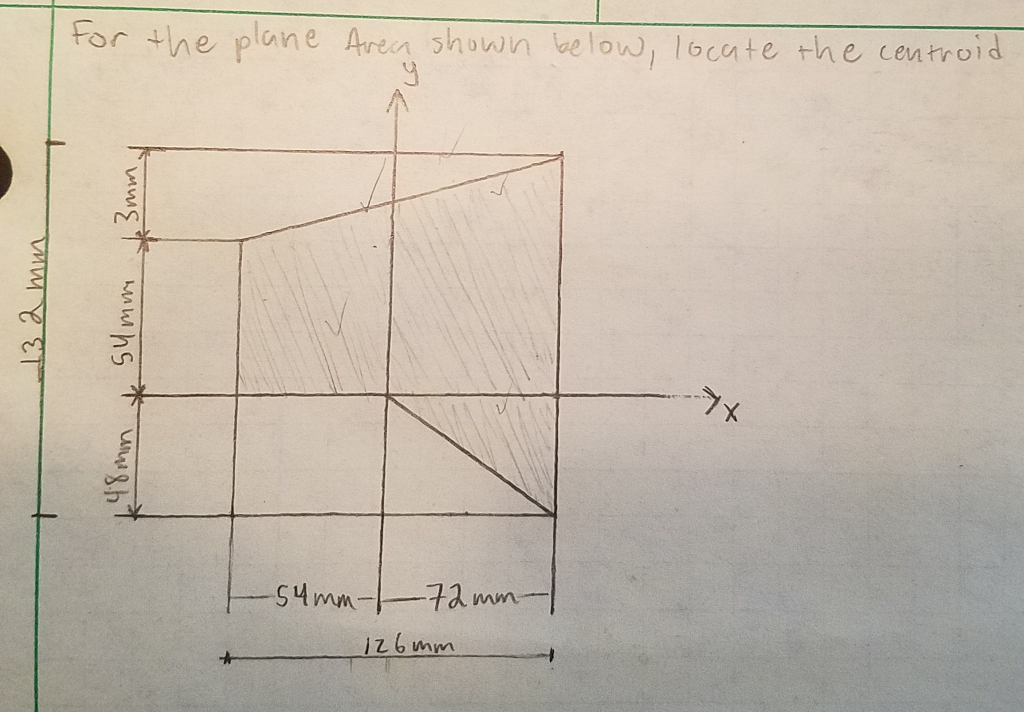 For the plane Area shown below, locate the centroid
y
3mm
54mm
132mm
x
48mm
54mm
72mm
126mm